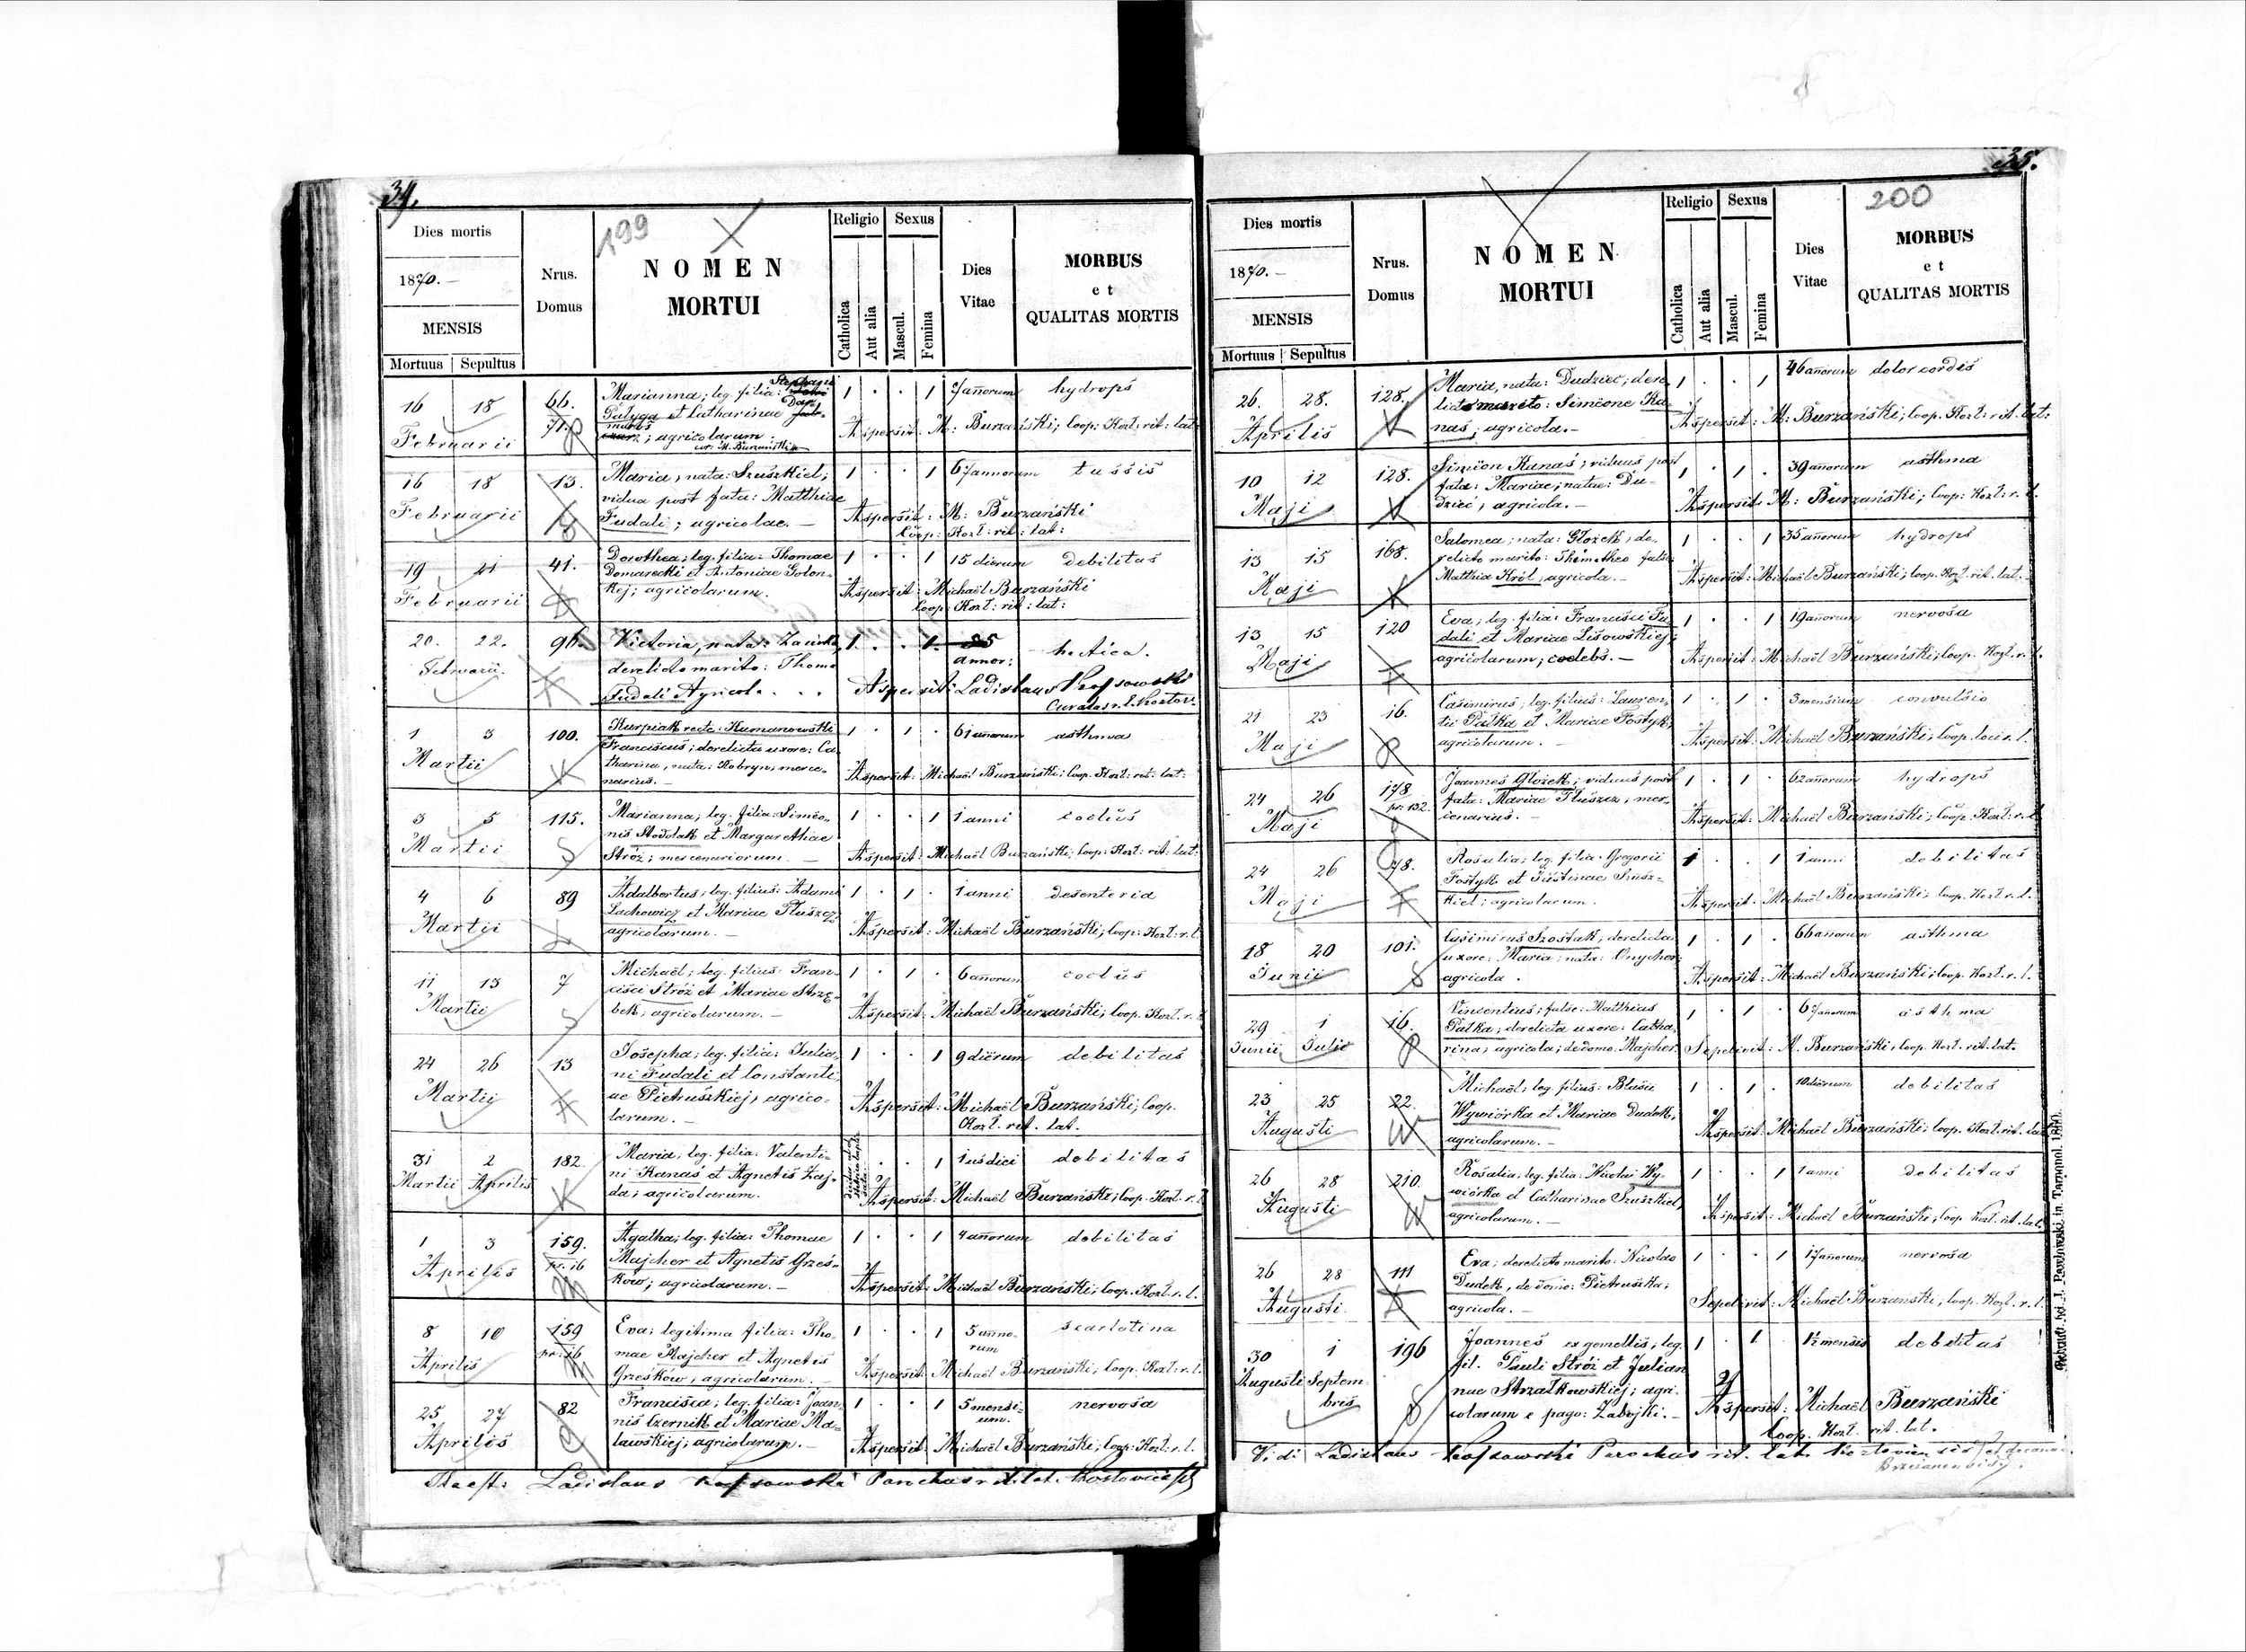 34.
199
Dies mortis
1870.
MENSIS
Mortuus Sepultus
Nrus.
Domus
NOMEN
MORTUI
Religio Sexus
Catholica
Aut alia
Mascul.
Femina
Dies
Vitae
MORBUS
et
QUALITAS MORTIS
16 18 66. Marianna; leg. filia: Stephani 1 . . 1 7 añorum hydrops
Februarii 71. Gałyga et Catharinae
agricolarum. Aspersit: M: Burzański; Coop: Kozł: rit: lat:
cor. M. Burzański
16 18 13. Maria, nata: Szuszkiel; 1 . . 1 67 annorum tussis
vidua post fata: Matthiae
Februarii Fudali; agricolae. — Aspersit: M: Burzański
Coop: Kozł: rit: lat:
19 21 41. Dorothea; leg. filia: Thomae 1 . . 1 15 dierum debilitas
Domarecki et Antoniae Golon-
Februarii kej; agricolarum. Aspersit: Michaël Burzański
Coop: Kozł: rit: lat:
20. 22. 96. Victoria, nata: 1. . . 1. hectica.
Annor:
Februarii. derelicto marito: Thoma
Fudali Agricola... Aspersit: Ladislaus
100. Kurpiak recte: Kumanowski
1 3 Franciscus; derelicta uxore: Ca- 1 . 1 . 61 añorum asthma
Martii tharina, nata: Kobryn, merce-
narius. — Aspersit: Michaël Burzański; Coop. Kozł: rit: lat:
3 5 115. Marianna; leg. filia: Simëo- 1 . . 1 1 anni coctus
nis Stodolak et Margarethae
Martii Stróz; mercenariorum. — Aspersit: Michaël Burzański; Coop: Kozł: rit. lat:
4 6 89 Adalbertus; leg. filius: Adami 1 . 1 . 1 anni desenteria
Lachowicz et Mariae Tłuszcz;
Martii agricolarum. — Aspersit: Michaël Burzański; Coop: Kozł: r. l.
11 13 7 Michaël; leg. filius: Fran- 1 . 1 . 6 añorum coctus
cisci Stróż et Mariae Strzę-
Martii bek; agricolarum. — Aspersit: Michaël Burzański; Coop. Kozł. r. l.
24 26 13 Josepha; leg. filia: Julia- 1 . . 1 9 diërum debilitas
ni Fudali et Constanti-
Martii ae Pietruszkiej, agrico- Aspersit: Michaël Burzański; Coop.
larum. — Kozł. rit. lat.
31 2 182. Maria; leg. filia: Valenti- . . 1 1 debilitas
Martii Aprilis ni Kanas et Agnetis Zaj-
da; agricolarum. Aspersit: Michaël Burzański; Coop. Kozł. r. l.
1 3 159. Agatha; leg. filia: Thomae 1 . . 1 4 añorum debilitas
pr. 16 Majcher et Agnetis Grześ-
Aprilis ków; agricolarum. — Aspersit: Michaël Burzański; Coop. Kozł. r. l.
8 10 159 Eva; legitima filia: Tho- 1 . . 1 5 anno- scarlatina
rum
Aprilis pr. 16 mae Majcher et Agnetis
Grześków, agricolarum. — Aspersit: Michaël Burzański; Coop. Kozł. r. l.
25 27 82 Francisca; leg. filia: Joan- 1 . . 1 5 mensi- nervosa
um.
nis Czernik et Mariae Ma-
Aprilis ławskiej; agricolarum. — Aspersit: Michaël Burzański; Coop. Kozł. r. l.
Ladislaus Parochus rit. lat.
35.
200
Dies mortis
1870. —
MENSIS
Mortuus Sepultus
Nrus.
Domus
NOMEN
MORTUI
Religio Sexus
Catholica
Aut alia
Mascul.
Femina
Dies
Vitae
MORBUS
et
QUALITAS MORTIS
26. 28. 128. Maria, nata: Dudziec; dere- 1 . . 1 46 anorum dolor cordis
licto marito: Simëone Ka-
Aprilis nas; agricola. — Aspersit: M: Burzański; Coop. Kozł: rit. lat:
10 12 128. Simëon Kanas; viduus post 1 . 1 . 39 anorum asthma
fata: Mariae; natae: Du-
Maji dziec; agricola. — Aspersit: M: Burzański; Coop: Kozł: r. l.
13 15 168. Salomea; nata: Głozek; de- 1 . . 1 35 anorum hydrops
relicto marito: Thimotheo false
Maji Matthia Król; agricola. — Aspersit: Michaël Burzański; Coop. Kozł. rit. lat.
13 15 120 Eva; leg. filia: Francisci Fu- 1 . . 1 19 añorum nervosa
dali et Mariae Lisowskiej;
Maji agricolarum; coelebs. — Aspersit: Michaël Burzański; Coop. Kozł. r. l.
21 23 16. Casimirus; leg. filius: Lauren- 1 . 1 . 3 mensium convulsio
tii Pałka et Mariae Fostyk;
Maji agricolarum. — Aspersit: Michaël Burzański; Coop. loci r. l.
24 26 178 Joannes Głozek; viduus post 1 . 1 . 62 anorum hydrops
pr: 132. fata: Mariae Tłuszcz, mer-
Maji cenarius. — Aspersit: Michaël Burzański; Coop. Kozł: r. l.
24 26 78. Rosalia; leg. filia: Gregorii 1 . . 1 1 anni debilitas
Fostyk et Justinae Szusz-
Maji kiel; agricolarum. Aspersit: Michaël Burzański; Coop. Kozł. r. l.
18 20 101. Casimirus Szostak; derelicta 1 . 1 . 66 anorum asthma
uxore: Maria; nata:
Junii agricola. Aspersit: Michaël Burzański; Coop. Kozł. r. l.
29 1 16. Vincentius; false: Matthias 1 . 1 . 67 anorum asthma
Pałka; derelicta uxore: Catha-
Junii Julii rina; agricola; de domo: Majcher. Sepelivit: M. Burzański; Coop. Kozł. rit. lat.
23 25 22. Michaël; leg. filius: Blasii 1 . 1 . 10 diërum debilitas
Wywiórka et Mariae Dudek;
Augusti agricolarum. — Aspersit: Michaël Burzański; Coop. Kozł. rit. lat.
26 28 210. Rosalia; leg. filia: Nicolai Wy- 1 . . 1 1 anni debilitas
wiórka et Catharinae Szuszkiel;
Augusti agricolarum. — Aspersit: Michaël Burzański; Coop. Kozł. rit. lat.
26 28 111 Eva; derelicto marito: Nicolao 1 . . 1 17 añorum nervosa
Dudek, de domo: Pietruszka;
Augusti agricola. — Sepelivit: Michaël Burzański; Coop. Kozł. r. l.
30 1 196 Joannes ex gemellis; leg. 1 . 1 . 1½ mensis debilitas
fil. Pauli Stróż et Julian-
Augusti Septem- nae Strzałkowskiej; agri-
bris colarum e pago: Zabojki. — Aspersit: Michaël Burzański
Coop. Kozł. rit. lat.
Vidi Ladislaus Parochus rit. lat.